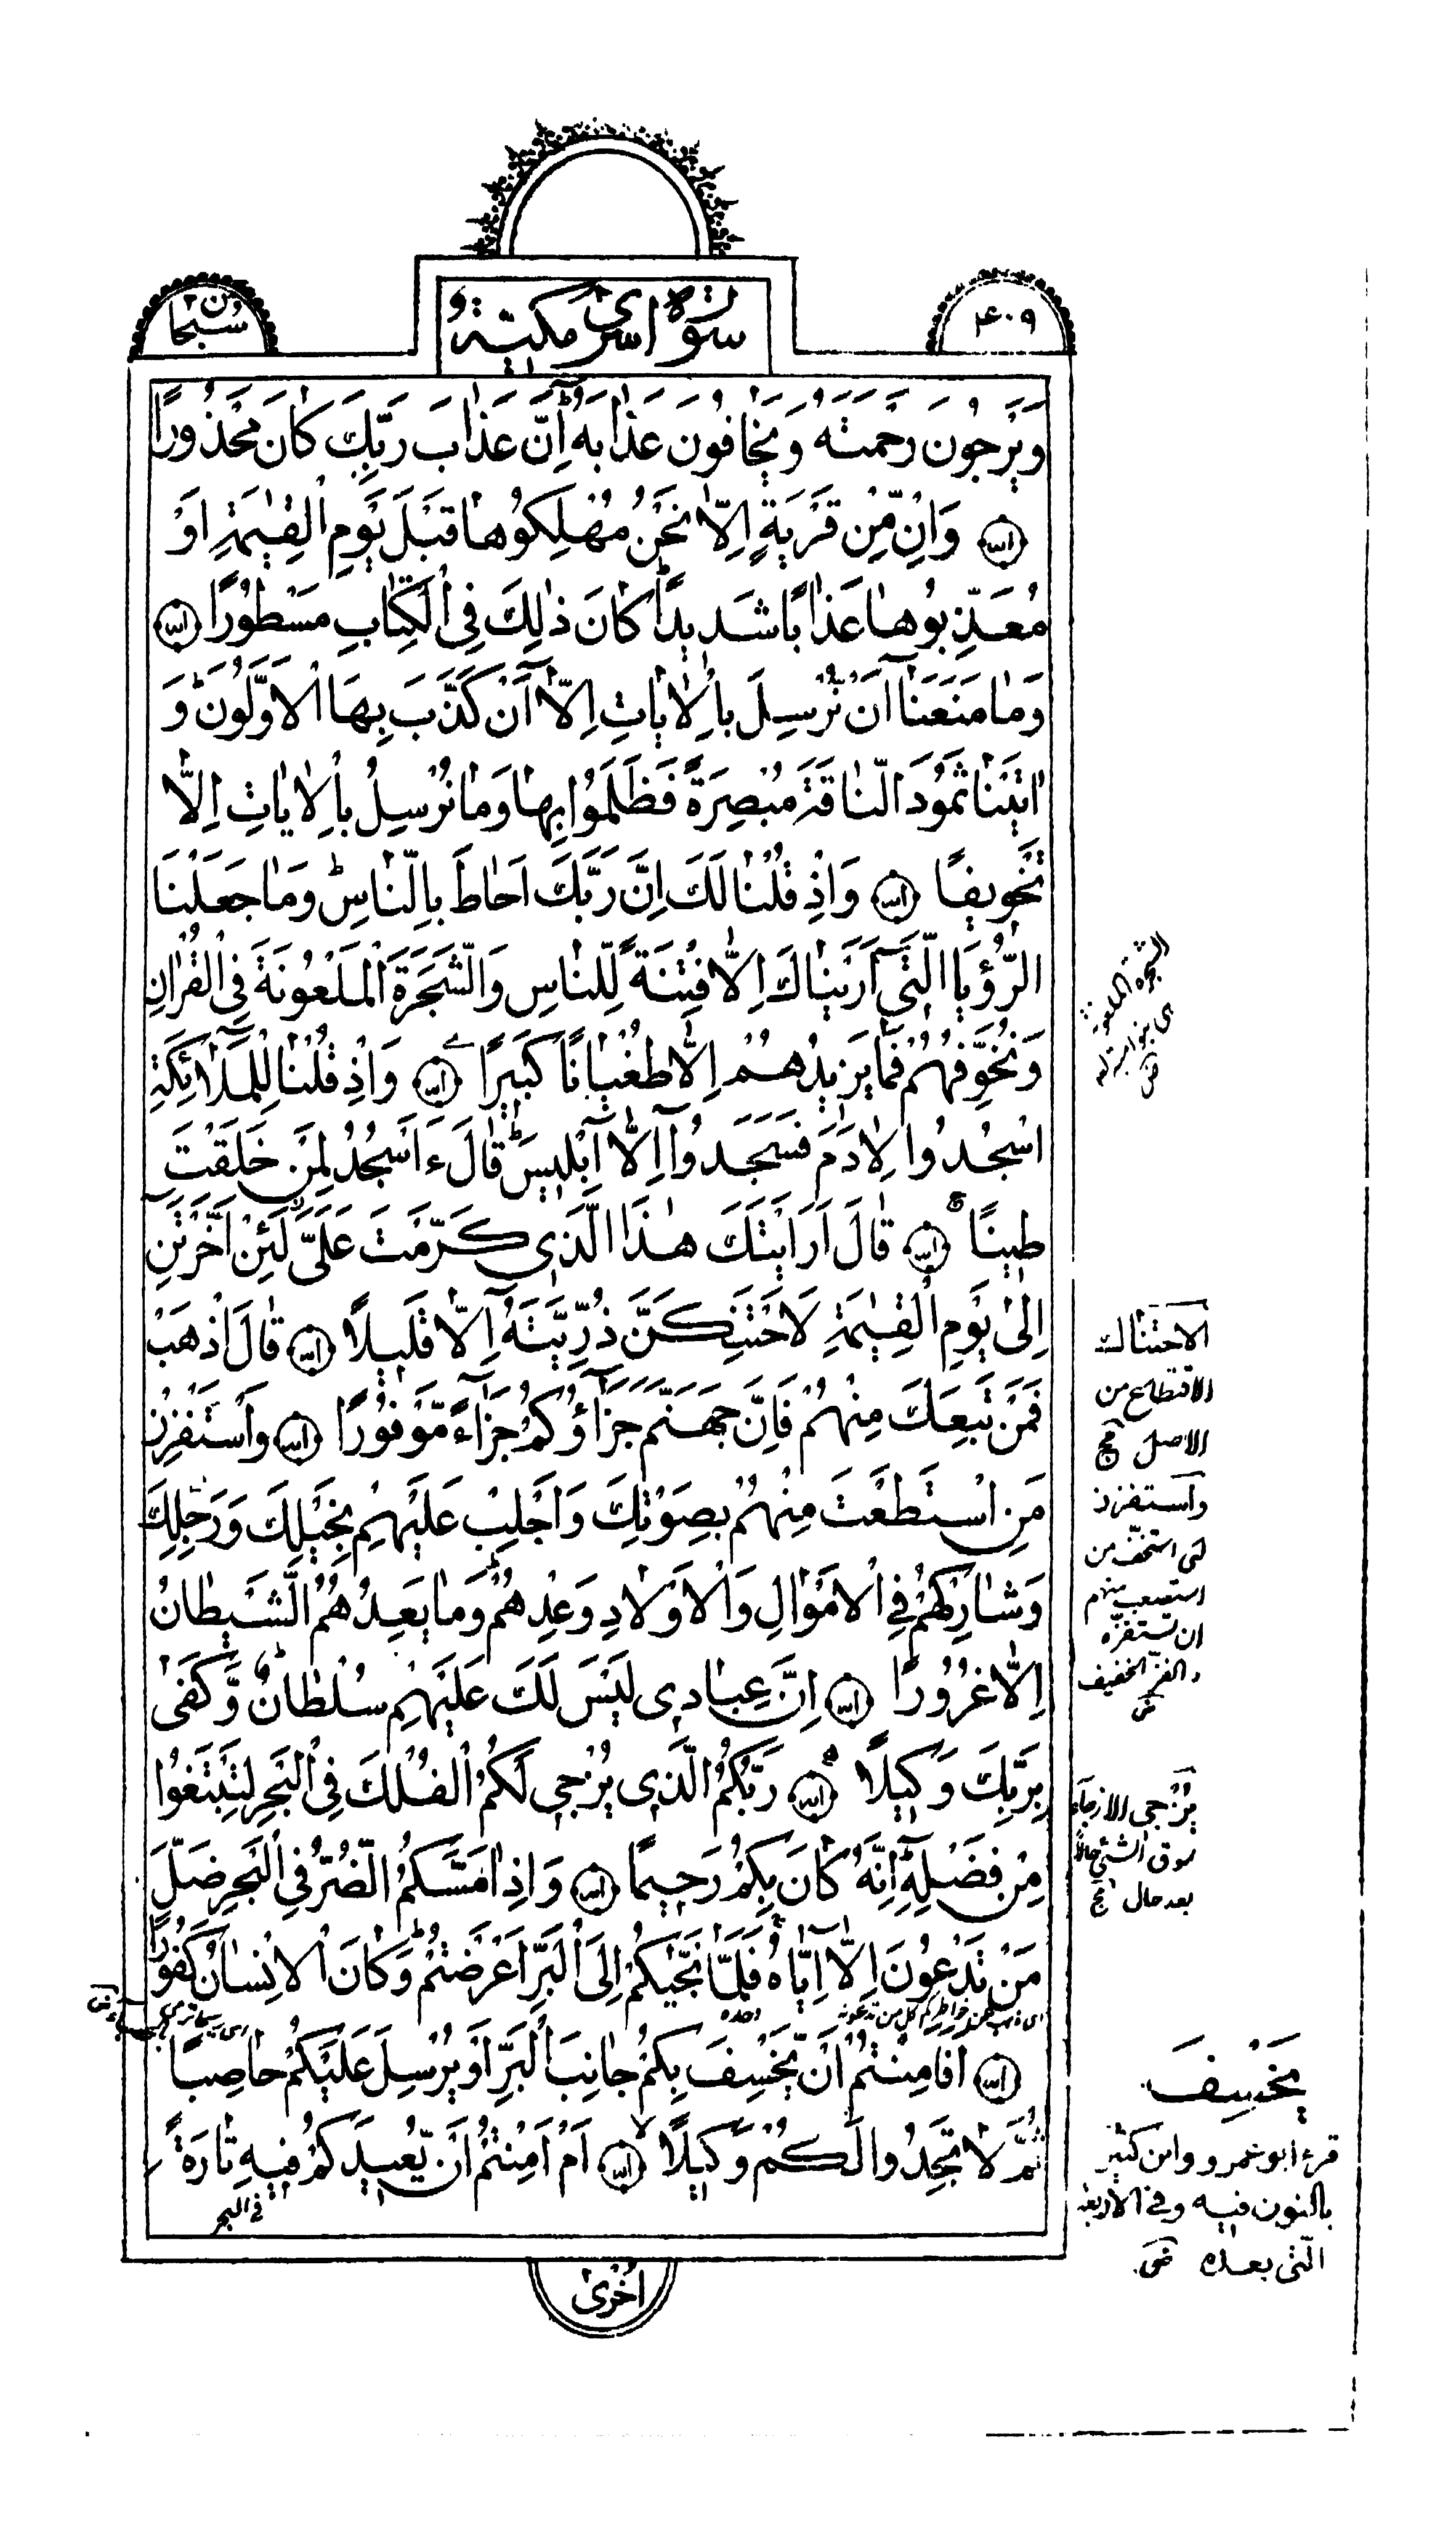 ٤٠٩
سورة اسری مکیّة
سبحان
وَيَرْجُونَ رَحْمَتَهُ وَيَخَافُونَ عَذَابَهُ اِنَّ عَذَابَ رَبِّكَ كَانَ مَحْذُورًا
وَاِنْ مِّنْ قَرْيَةٍ اِلَّا نَحْنُ مُهْلِكُوهَا قَبْلَ يَوْمِ الْقِيٰمَةِ اَوْ
مُعَذِّبُوهَا عَذَابًا شَدِيدًا كَانَ ذٰلِكَ فِي الْكِتَابِ مَسْطُورًا
وَمَا مَنَعَنَا اَنْ نُرْسِلَ بِالْاٰيَاتِ اِلَّا اَنْ كَذَّبَ بِهَا الْاَوَّلُونَ وَ
اٰتَيْنَا ثَمُودَ النَّاقَةَ مُبْصِرَةً فَظَلَمُوا بِهَا وَمَا نُرْسِلُ بِالْاٰيَاتِ اِلَّا
تَخْوِيفًا وَاِذْ قُلْنَا لَكَ اِنَّ رَبَّكَ اَحَاطَ بِالنَّاسِ وَمَا جَعَلْنَا
الرُّؤْيَا الَّتِي اَرَيْنَاكَ اِلَّا فِتْنَةً لِلنَّاسِ وَالشَّجَرَةَ الْمَلْعُونَةَ فِي الْقُرْاٰنِ
وَنُخَوِّفُهُمْ فَمَا يَزِيدُهُمْ اِلَّا طُغْيَانًا كَبِيرًا وَاِذْ قُلْنَا لِلْمَلٰٓائِكَةِ
اسْجُدُوا لِاٰدَمَ فَسَجَدُوا اِلَّا اِبْلِيسَ قَالَ ءَاَسْجُدُ لِمَنْ خَلَقْتَ
طِينًا قَالَ اَرَاَيْتَكَ هٰذَا الَّذِي كَرَّمْتَ عَلَيَّ لَئِنْ اَخَّرْتَنِ
اِلىٰ يَوْمِ الْقِيٰمَةِ لَاَحْتَنِكَنَّ ذُرِّيَّتَهُ اِلَّا قَلِيلًا قَالَ اذْهَبْ
فَمَنْ تَبِعَكَ مِنْهُمْ فَاِنَّ جَهَنَّمَ جَزَاؤُكُمْ جَزَاءً مَّوْفُورًا وَاسْتَفْزِزْ
مَنِ اسْتَطَعْتَ مِنْهُمْ بِصَوْتِكَ وَاَجْلِبْ عَلَيْهِمْ بِخَيْلِكَ وَرَجِلِكَ
وَشَارِكْهُمْ فِي الْاَمْوَالِ وَالْاَوْلَادِ وَعِدْهُمْ وَمَا يَعِدُهُمُ الشَّيْطَانُ
اِلَّا غُرُورًا اِنَّ عِبَادِي لَيْسَ لَكَ عَلَيْهِمْ سُلْطَانٌ وَّكَفىٰ
بِرَبِّكَ وَكِيلًا رَبُّكُمُ الَّذِي يُزْجِي لَكُمُ الْفُلْكَ فِي الْبَحْرِ لِتَبْتَغُوا
مِنْ فَضْلِهِ اِنَّهُ كَانَ بِكُمْ رَحِيمًا وَاِذَا مَسَّكُمُ الضُّرُّ فِي الْبَحْرِ ضَلَّ
مَنْ تَدْعُونَ اِلَّا اِيَّاهُ فَلَمَّا نَجّٰيكُمْ اِلَى الْبَرِّ اَعْرَضْتُمْ وَكَانَ الْاِنْسَانُ كَفُورًا
وحده
اَفَاَمِنْتُمْ اَنْ يَّخْسِفَ بِكُمْ جَانِبَ الْبَرِّ اَوْ يُرْسِلَ عَلَيْكُمْ حَاصِبًا
ثُمَّ لَا تَجِدُوا لَكُمْ وَكِيلًا اَمْ اَمِنْتُمْ اَنْ يُّعِيدَكُمْ فِيهِ تَارَةً
في البحر
اُخْرىٰ
الشجرة الملعونة
الاحتناك
الاقتطاع من
الاصل
واستفزز
استخف من
استصعب منهم
ان تستفزه
والفز الخفيف
يزجي الازجاء
سوق الشئ حالا
بعد حال
يَخْسِفَ
قرء ابو عمرو وابن كثير
بالنون فيه وفي الاربعة
التي بعده